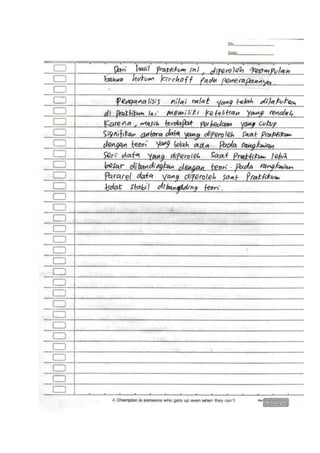 No.
Date:
Dari hasil praktikum ini, diperoleh kesimpulan
bahwa hukum kirchoff pada penerapannya
Penganalisis nilai ralat yang telah dilakukan
di praktikum ini memiliki ketelitian yang rendah,
Karena, masih terdapat perbedaan yang cukup
signifikan antara data yang diperoleh saat praktikum
dengan teori yang telah ada. Pada rangkaian
Seri data yang diperoleh saat praktikum lebih
besar dibandingkan dengan teori. Pada rangkaian
Pararel data yang diperoleh saat praktikum
tidak stabil dibanding teori.
A Champion is someone who gets up even when they can't